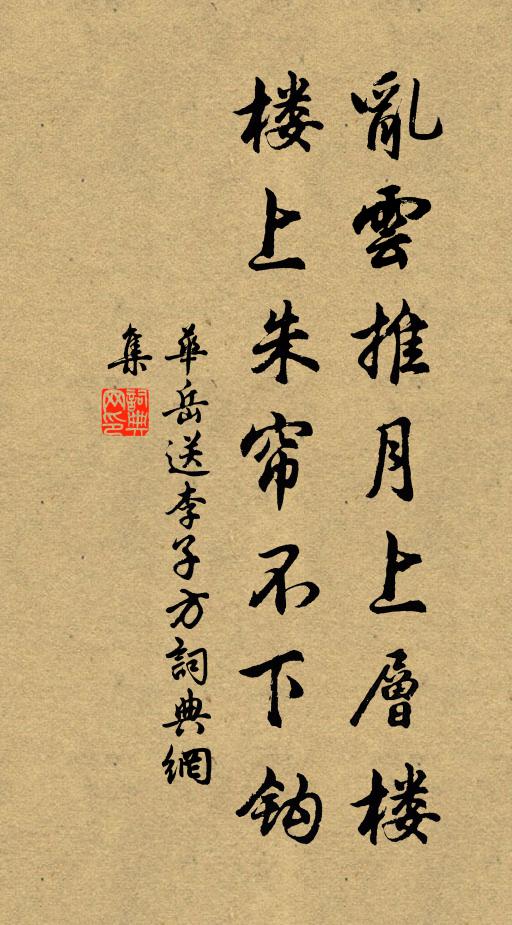 亂雲推月上層楼
楼上朱帘不下鈎
華岳送李子方詞典網
集
詞典
网印